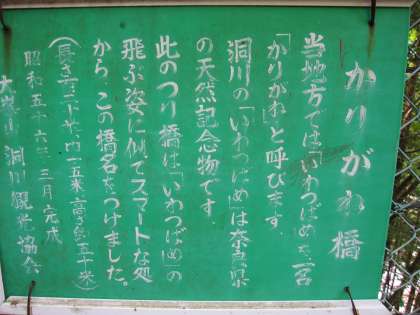 かりがね橋
当地方では「いわつばめ」を一名
「かりがね」と呼びます。
洞川の「いわつばめ」は奈良県
の天然記念物です
此のつり橋は「いわつばめ」の
飛ぶ姿に似てスマートな処
から、この橋名をつけました。
(長さ百二十米、内一五米、高さ五十米)
昭和五十六年三月完成
大峯山洞川観光協会